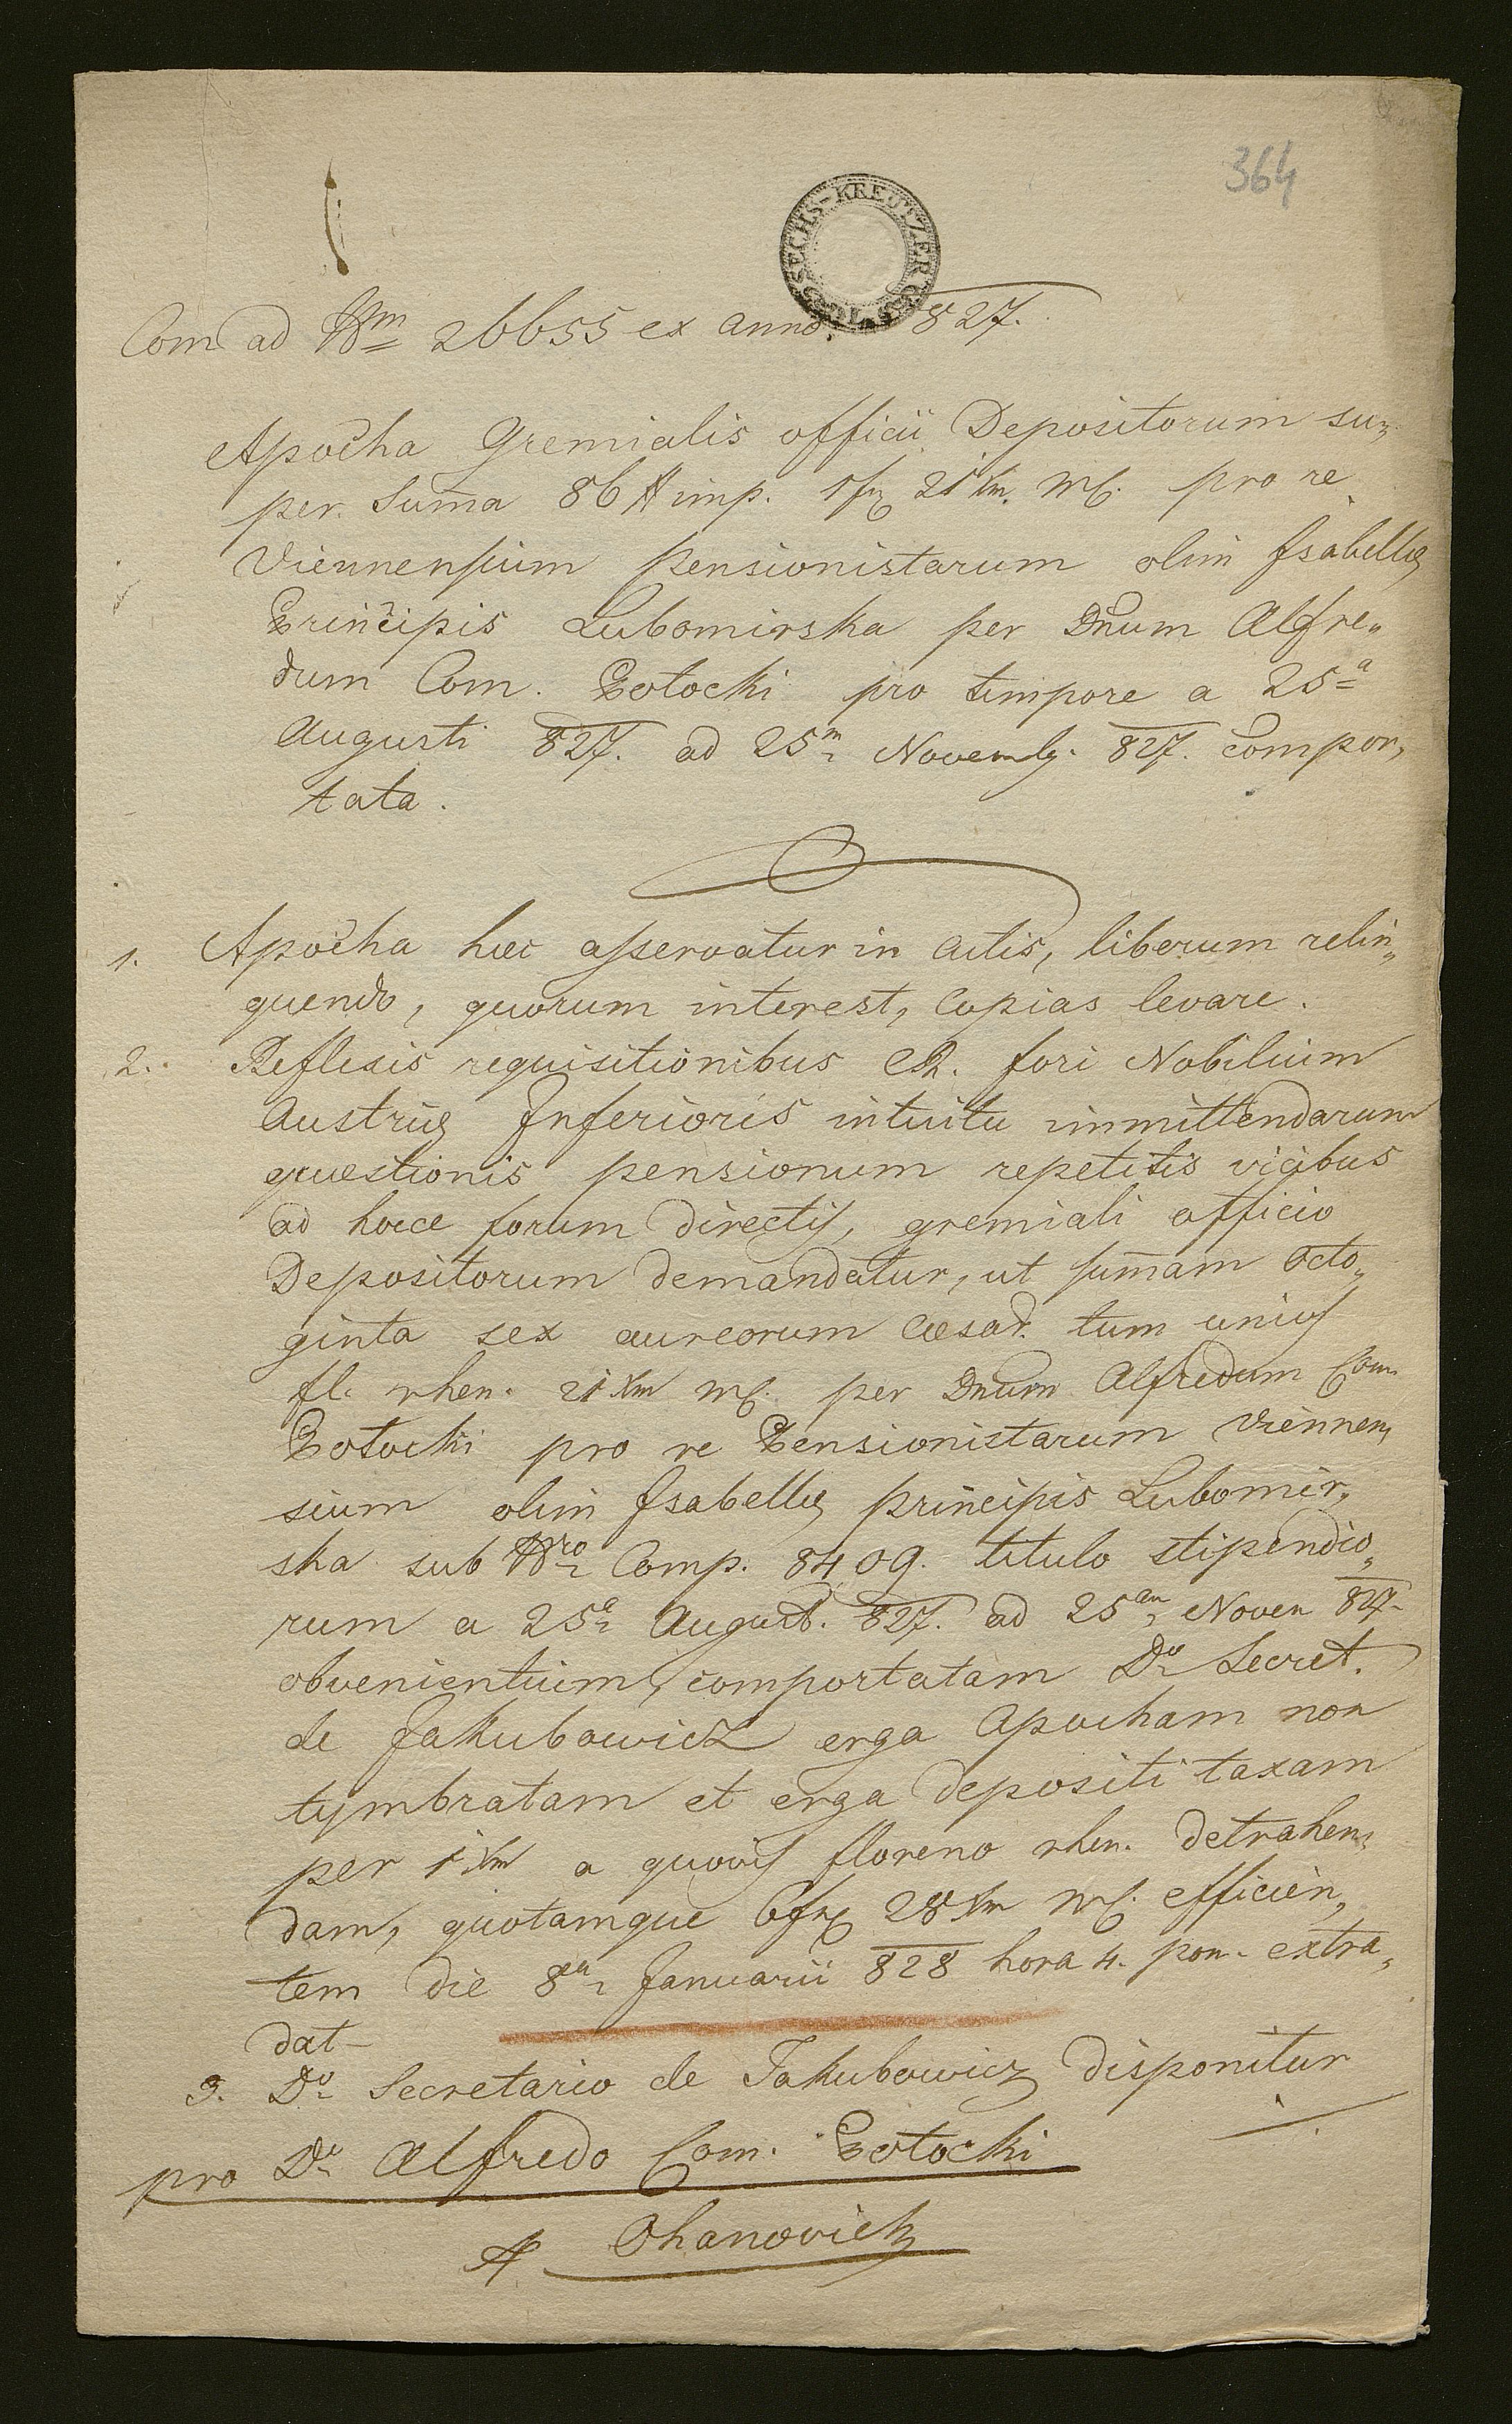 364
SECHS-KREUTZER
Com ad Nrm 26655 ex anno 827.
Apocha Gremialis officii Depositorum su„
per Suma 86 # imp. 1 fr 21 Xm. MC. pro re
Viennensium pensionistarum olim Isabellæ
Principis Lubomirska per Dnum Alfre„
dum Com. Potocki pro tempore a 25a
Augusti 827. ad 25m Novembr. 827. compor„
tata.
1. Apocha hæc asservatur in actis, liberum relin„
quendo, quorum interest, copias levare.
2. Reflexis requisitionibus CR. fori Nobilium
Austriæ Inferioris intuitu immittendarum
quæstionis pensionum repetitis vicibus
ad hocce forum directis, gremiali officio
Depositorum demandatur, ut sumam octo„
ginta sex aureorum Cæsar. tum unius
fl. rhen. 21 Xm MC. per Dnum Alfredum Com.
Potocki pro re Pensionistarum Viennen„
sium olim Isabellæ principis Lubomir„
ska sub Nro Comp. 8409. titulo stipendio„
rum a 25a August. 827. ad 25am Novem 827.
obvenientium, comportatam Do Secret.
de Jakubowicz erga Apocham non
tymbratam et erga depositi taxam
per 1 Xm a quovis floreno rhen. detrahen„
dam, quotamque 6 fr 28 Xm MC. efficien„
tem die 8a Januarii 828 hora 4. pom. extra„
dat
3. Do Secretario de Jakubowicz disponitur
pro Do Alfredo Com. Potocki
Ohanowicz